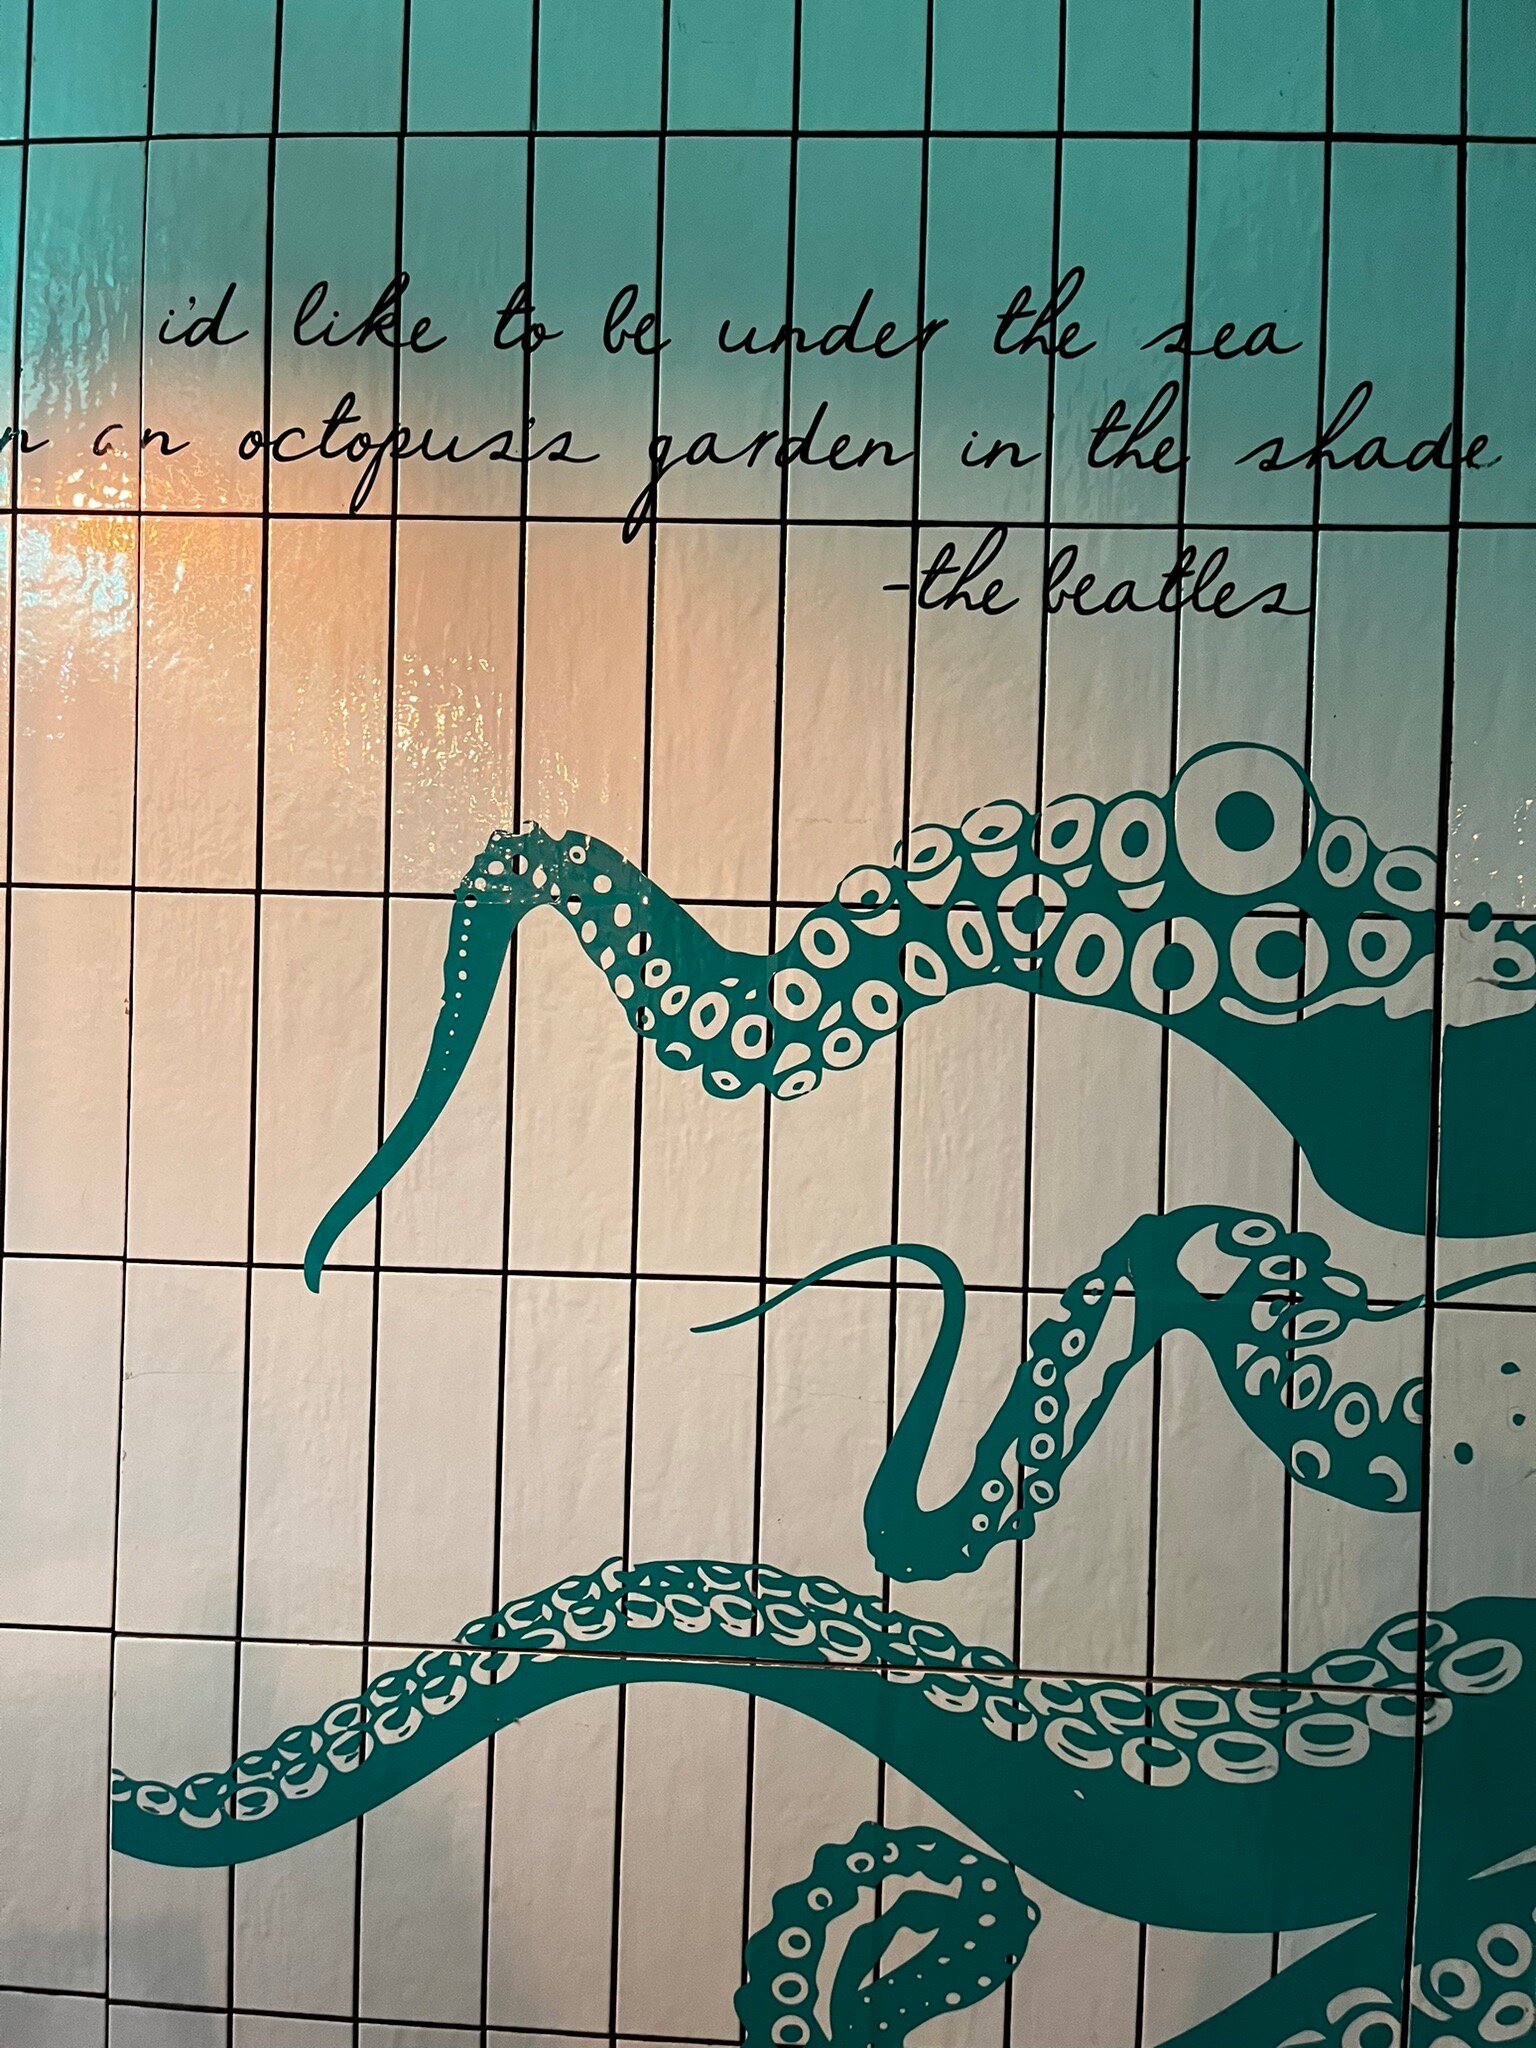 i'd like to be under the sea
n an octopus's garden in the shade
-the beatles